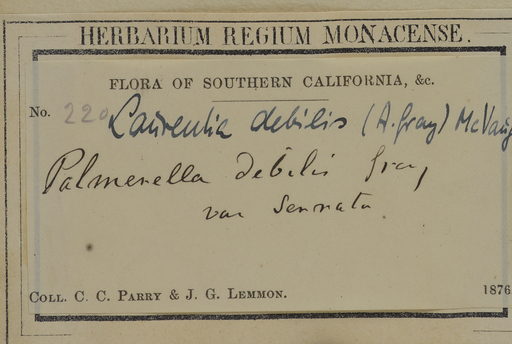 HERBARIUM REGIUM MONACENSE.
FLORA OF SOUTHERN CALIFORNIA, &c.
No. 220 Laurentia debilis (A. Gray) McVaug
Palmerella debilis Gray
var Serrata
COLL. C. C. PARRY & J. G. LEMMON. 1876